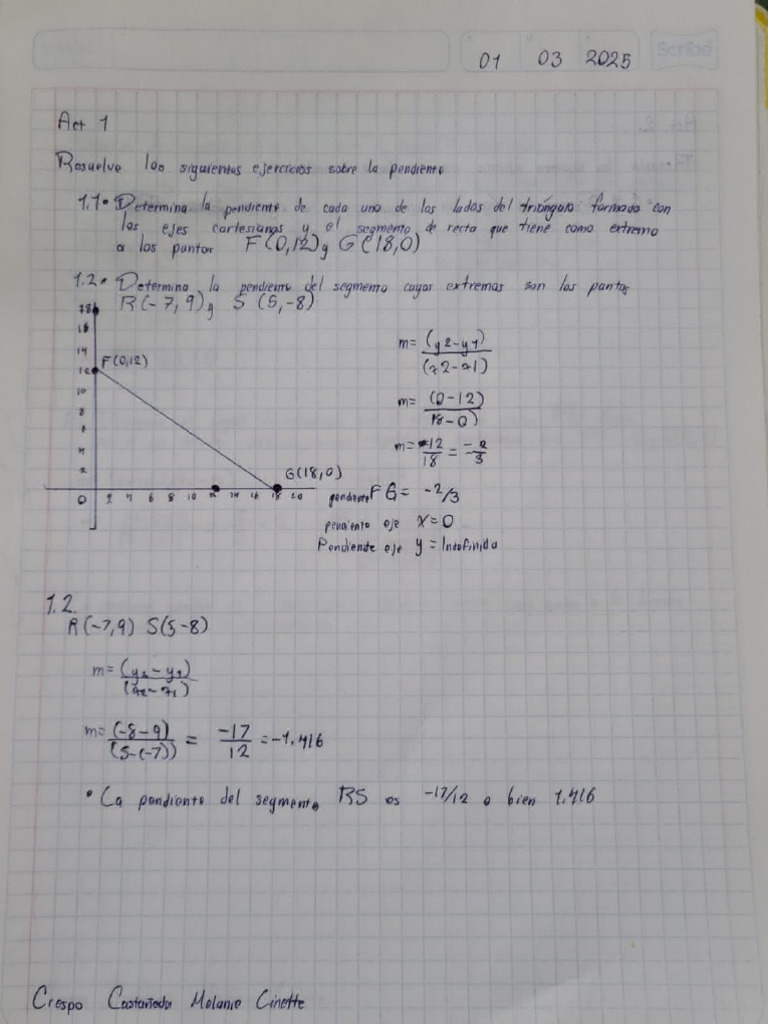 Scribe
01 03 2025
Act 1
Resuelve los siguientes ejercicios sobre la pendiente
1.1• Determina la pendiente de cada uno de los lados del triángulo formado con
los ejes cartesianos y el segmento de recta que tiene como extremo
a los puntos F(0,12) y G(18,0)
1.2• Determina la pendiente del segmento cuyos extremos son los puntos
R(-7,9) y S (5,-8)
14
12
10
8
6
4
2
F(0,12)
G(18,0)
0 2 4 6 8 10 12 14 16 18 20
m= (y2-y1)
(x2-x1)
m= (0-12)
(18-0)
m= -12/18 = -2/3
pendiente FG = -2/3
pendiente eje x=0
Pendiente eje y = Indefinida
1.2.
R(-7,9) S(5-8)
m= (y2-y1)
(x2-x1)
m= (-8-9) = -17 = -1.416
(5-(-7)) 12
• La pendiente del segmento RS es -17/12 o bien 1.416
Crespo Castañeda Melanie Ginette